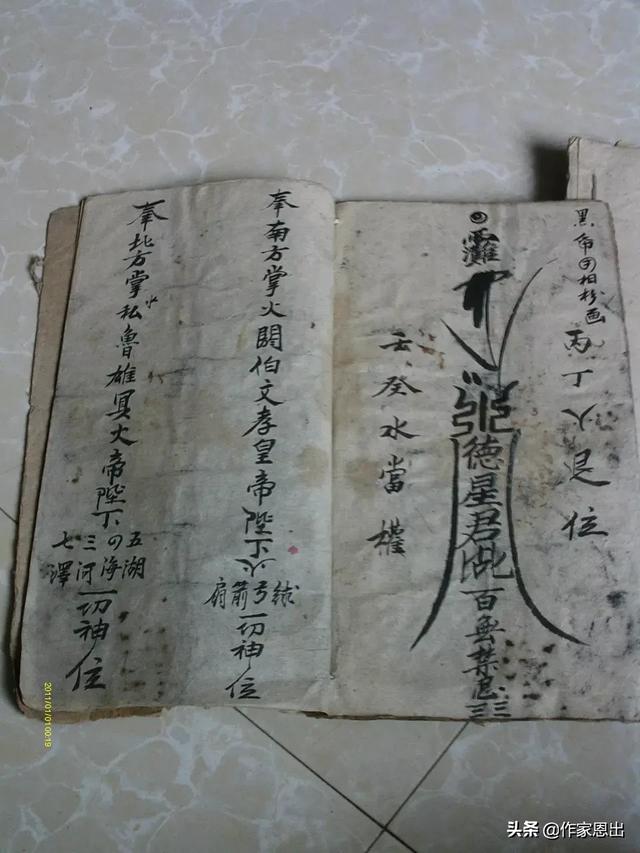 黑帝四相移画
丙丁火退位
德星君
百無禁忌
壬癸水當權
奉南方掌火閼伯文孝皇帝陛下火
弓箭
一切神位
奉北方掌私魯雄冥火帝陛下
五湖
四海
三河
七澤
一切神位
2011/01/01 00:19
头条 @作家恩出